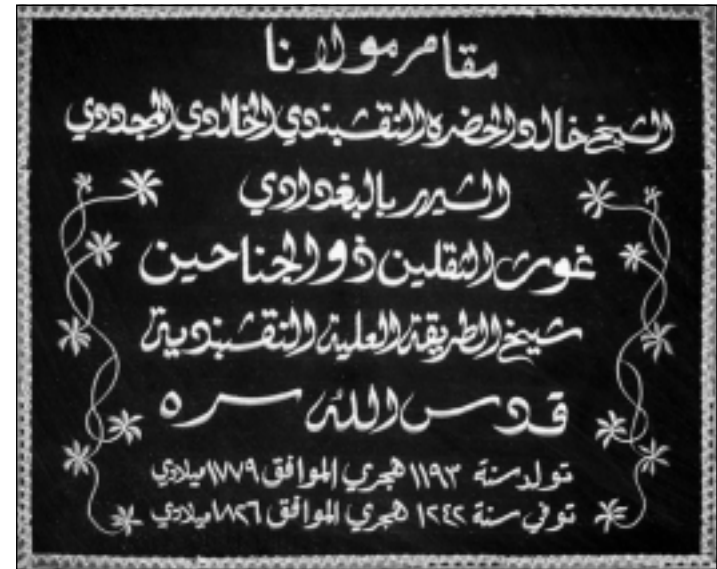 مقام مولانا
الشيخ خالد الحضرة النقشبندي الخالدي المجددي
الشهير بالبغدادي
غوث الثقلين ذو الجناحين
شيخ الطريقة العلية النقشبندية
قدس الله سره
تولد سنة ١١٩٣ هجري الموافق ١٧٧٩ ميلادي
توفي سنة ١٢٤٢ هجري الموافق ١٨٢٦ ميلادي